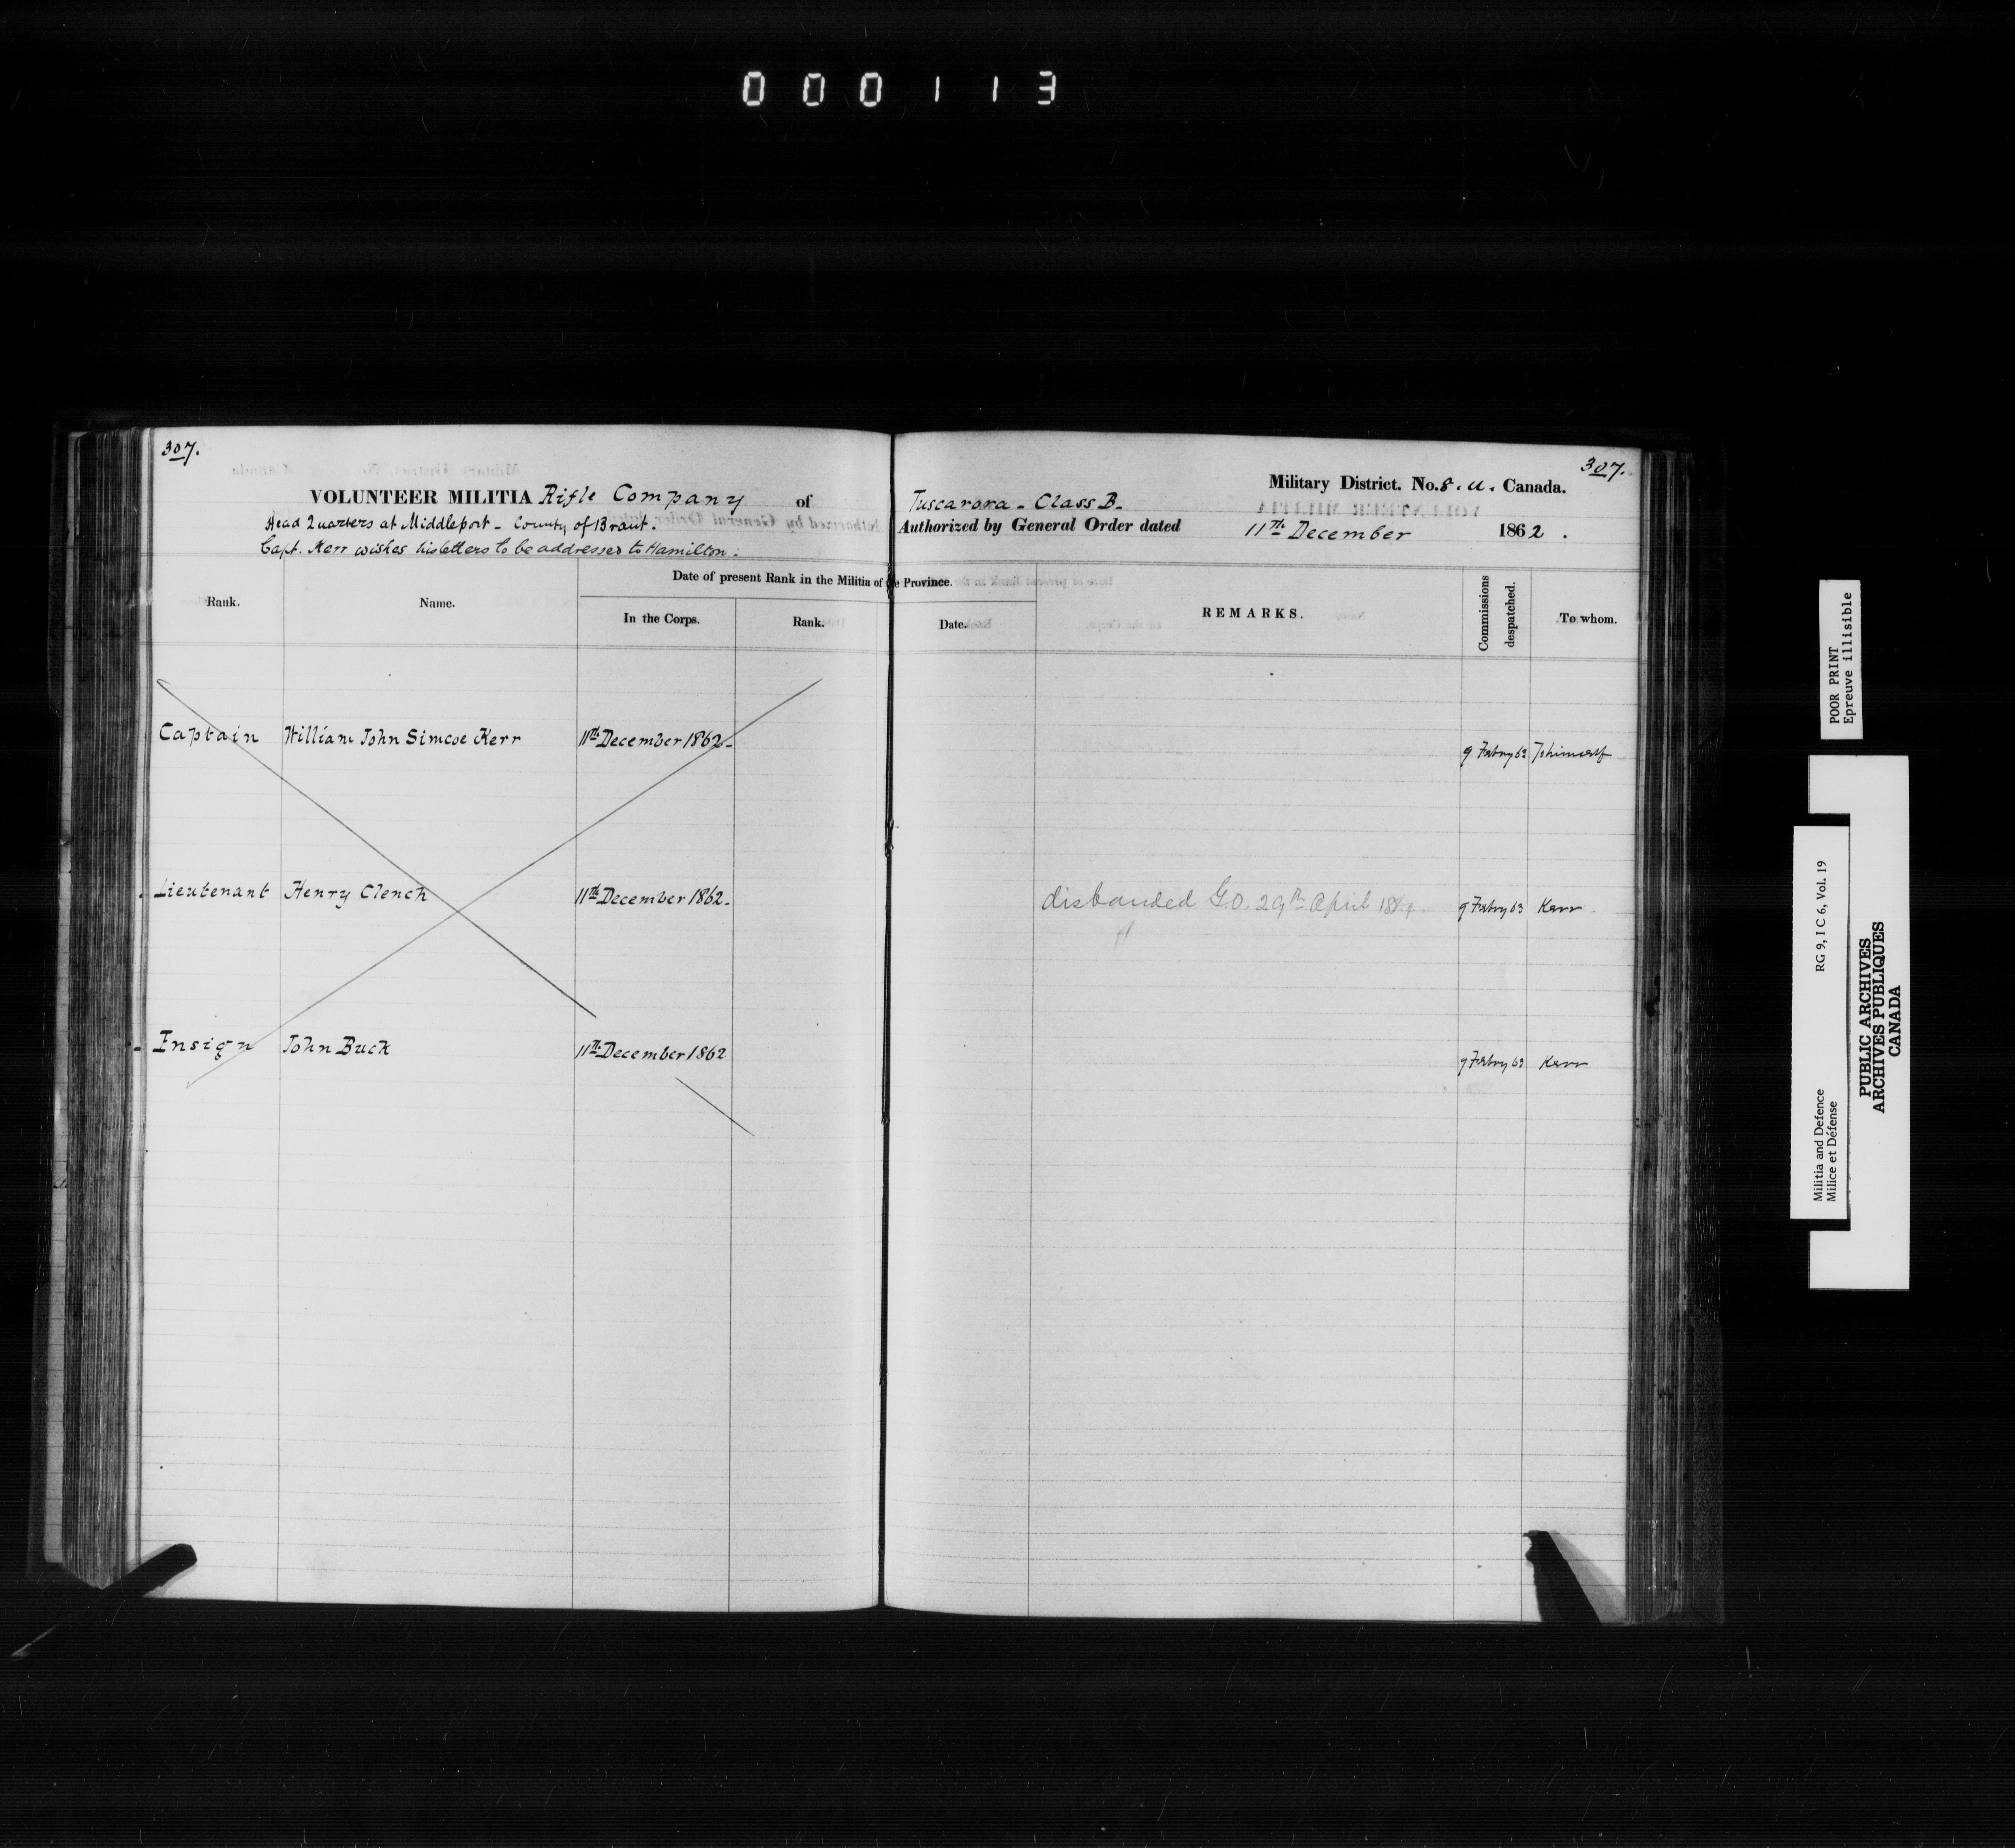 000113
307.
307.
Military District. No. 8. U. Canada.
VOLUNTEER MILITIA Rifle Company of Tuscarora - Class B.
Head Quarters at Middleport - County of Brant.
Authorized by General Order dated 11th December 1862.
Capt. Kerr wishes his letters to be addressed to Hamilton.
Date of present Rank in the Militia of the Province.
Rank. Name. In the Corps. Rank. Date. REMARKS. Commissions despatched. To whom.
Captain William John Simcoe Kerr 11th December 1862. 9 Febry 63 To himself
Lieutenant Henry Clench 11th December 1862. disbanded G.O. 29th April 9 Febry 63 Kerr
Ensign John Buck 11th December 1862 9 Febry 63 Kerr
POOR PRINT
Epreuve illisible
Militia and Defence RG 9, I C 6, Vol. 19
Milice et Défense
PUBLIC ARCHIVES
ARCHIVES PUBLIQUES
CANADA